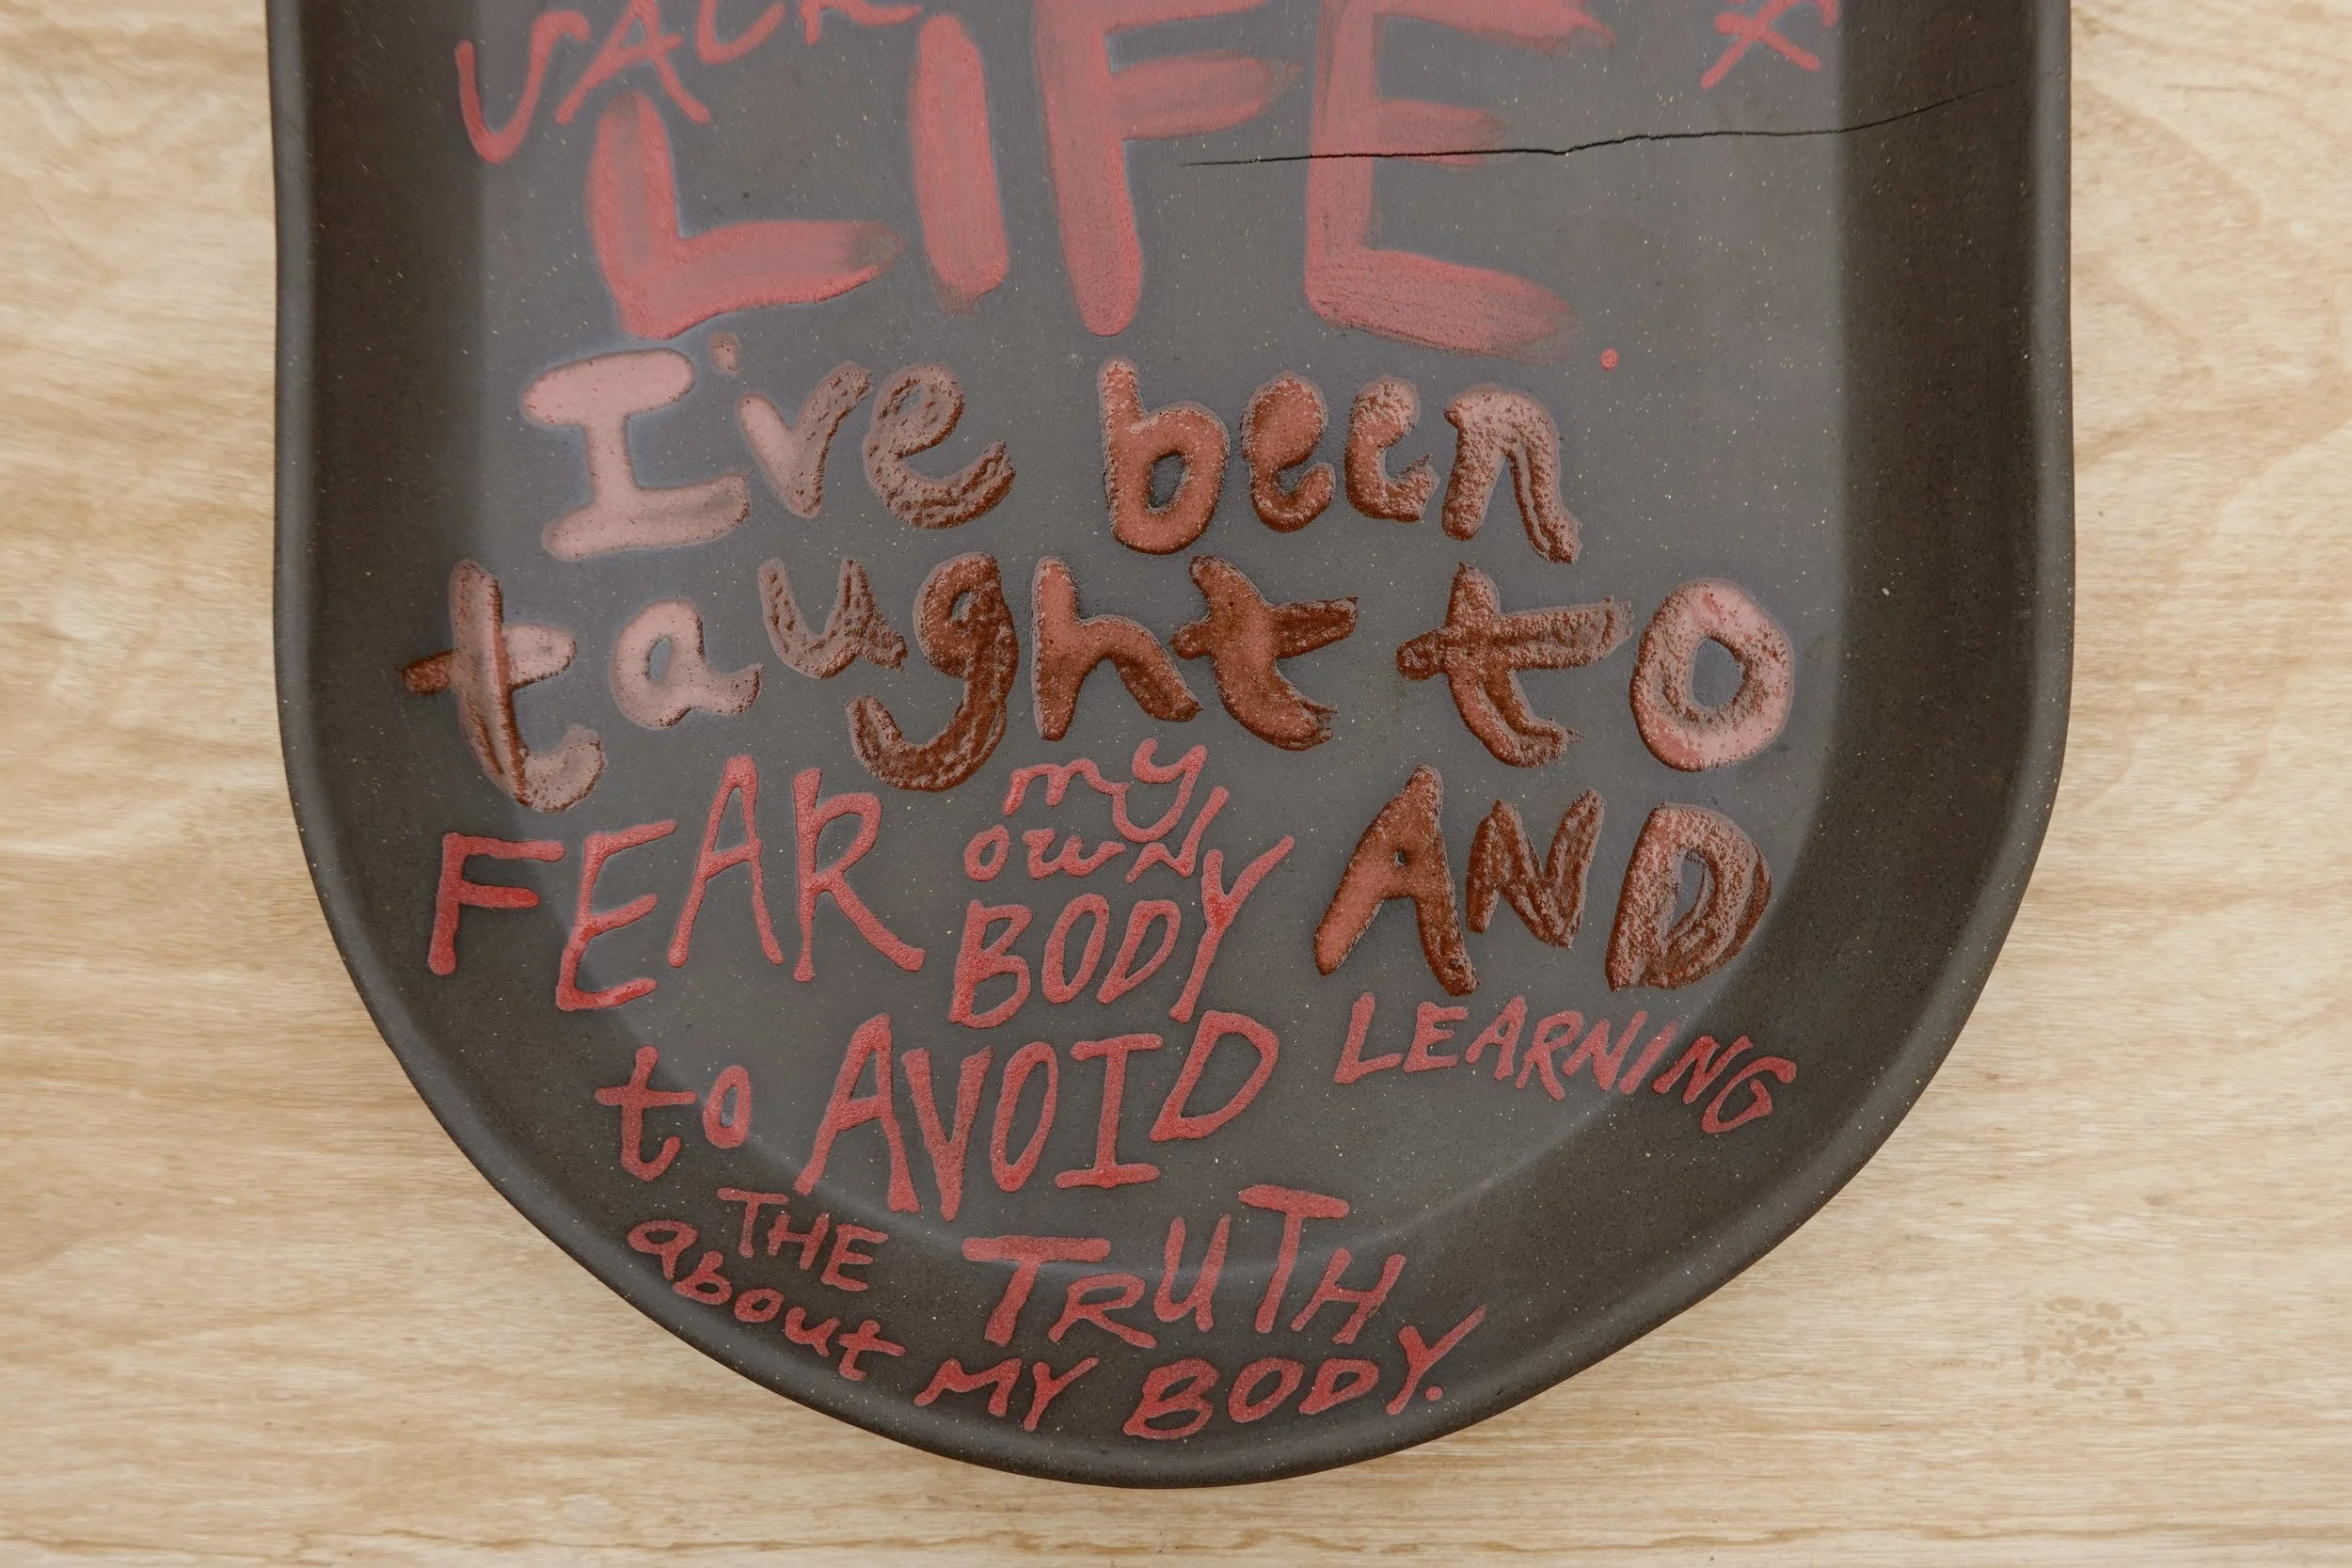 LIFE.
I've been
taught to
FEAR my own BODY AND
LEARNING
to AVOID
THE TRUTH
about MY BODY.